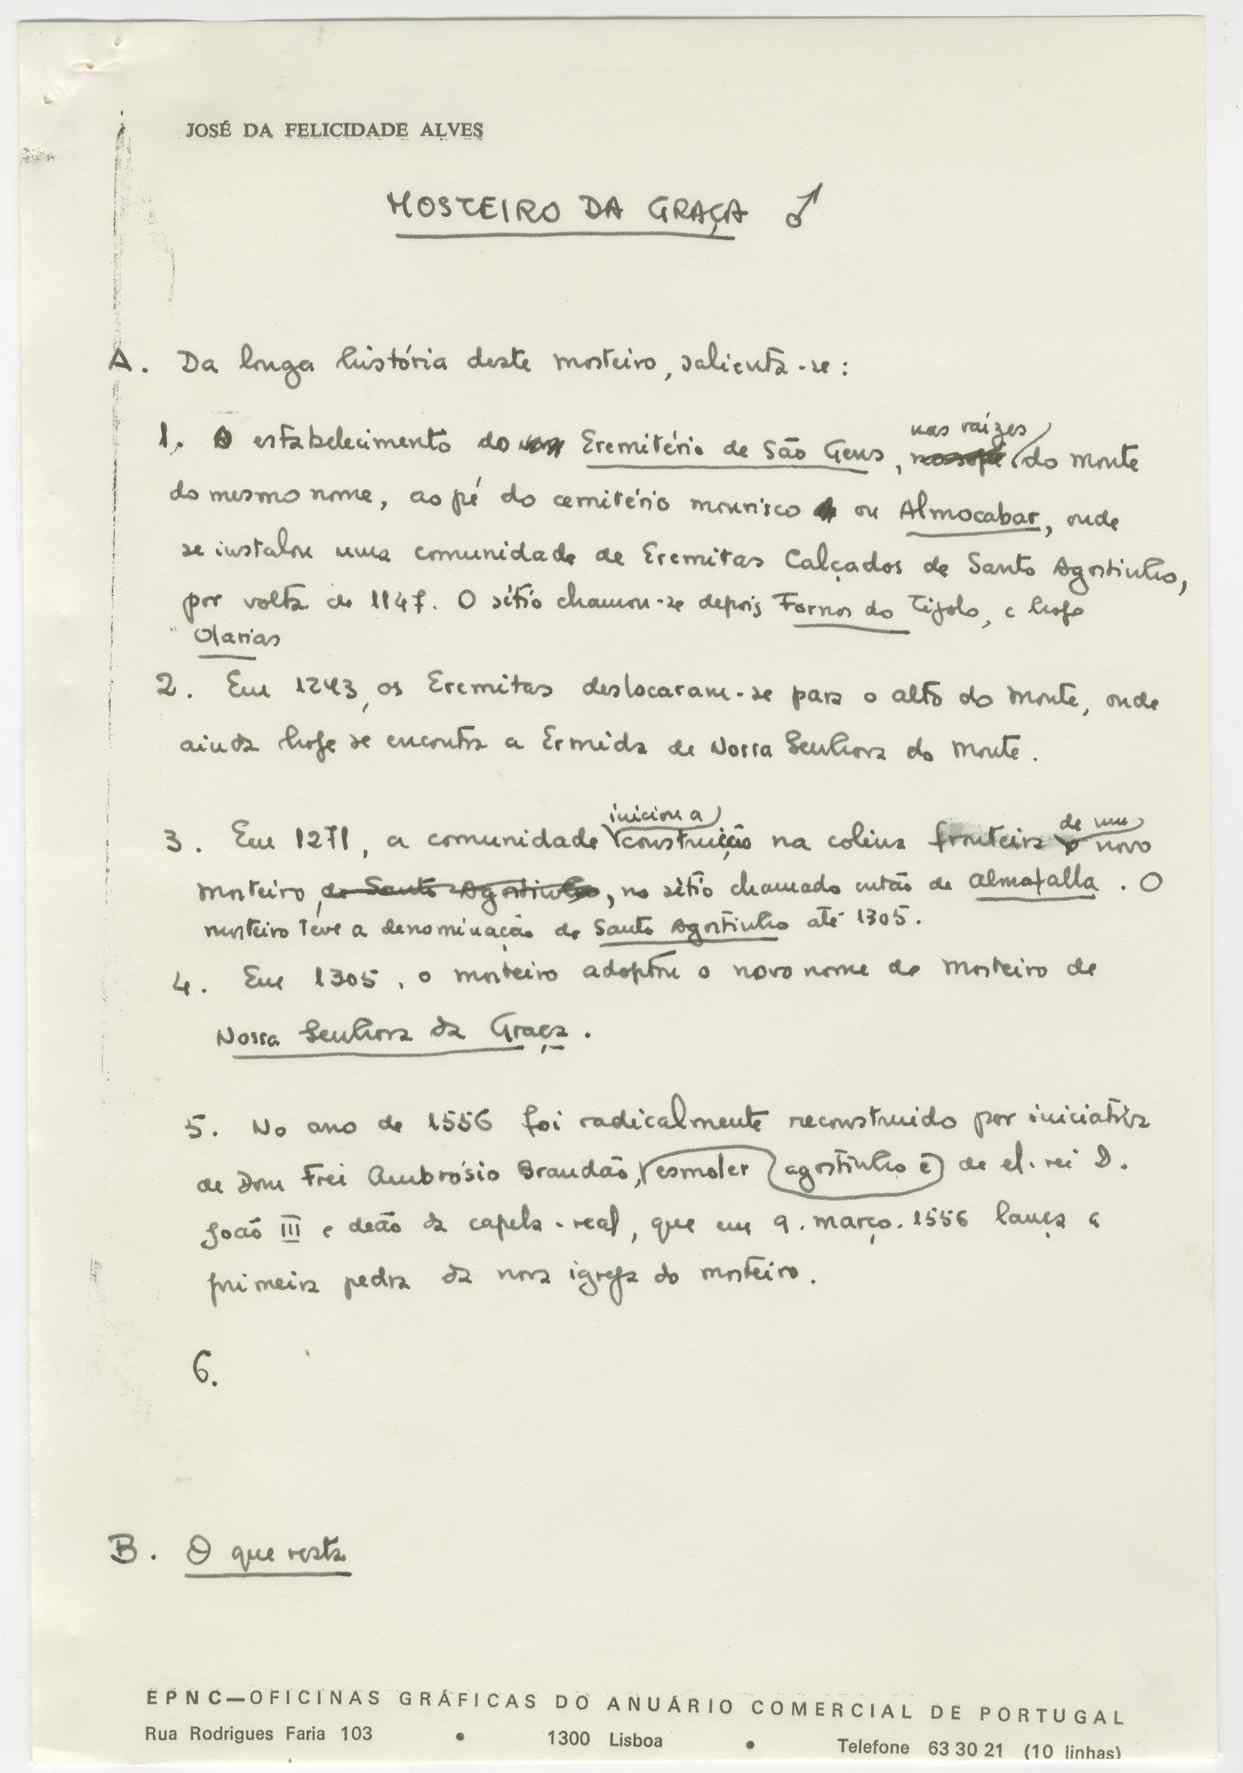 JOSÉ DA FELICIDADE ALVES
MOSTEIRO DA GRAÇA ♂
A. Da longa história deste mosteiro, salienta-se:
nas raízes
1. O estabelecimento do Eremitério de São Gens, do monte
do mesmo nome, ao pé do cemitério mourisco ou Almocabar, onde
se instalou uma comunidade de Eremitas Calçados de Santo Agostinho,
por volta de 1147. O sítio chamou-se depois Fornos do Tijolo, e hoje
Olarias
2. Em 1243, os Eremitas deslocaram-se para o alto do monte, onde
ainda hoje se encontra a Ermida de Nossa Senhora do Monte.
iniciou a de um
3. Em 1271, a comunidade construição na colina fronteira novo
mosteiro, de Santo Agostinho, no sítio chamado então de Almafalla. O
mosteiro teve a denominação de Santo Agostinho até 1305.
4. Em 1305, o mosteiro adoptou o novo nome de Mosteiro de
Nossa Senhora da Graça.
5. No ano de 1556 foi radicalmente reconstruido por iniciativa
de Dom Frei Ambrósio Brandão, esmoler agostinho e de el-rei D.
João III e deão da capela-real, que em 9.março.1556 lança a
primeira pedra da nova igreja do mosteiro.
6.
B. O que resta
EPNC—OFICINAS GRÁFICAS DO ANUÁRIO COMERCIAL DE PORTUGAL
Rua Rodrigues Faria 103 • 1300 Lisboa • Telefone 63 30 21 (10 linhas)